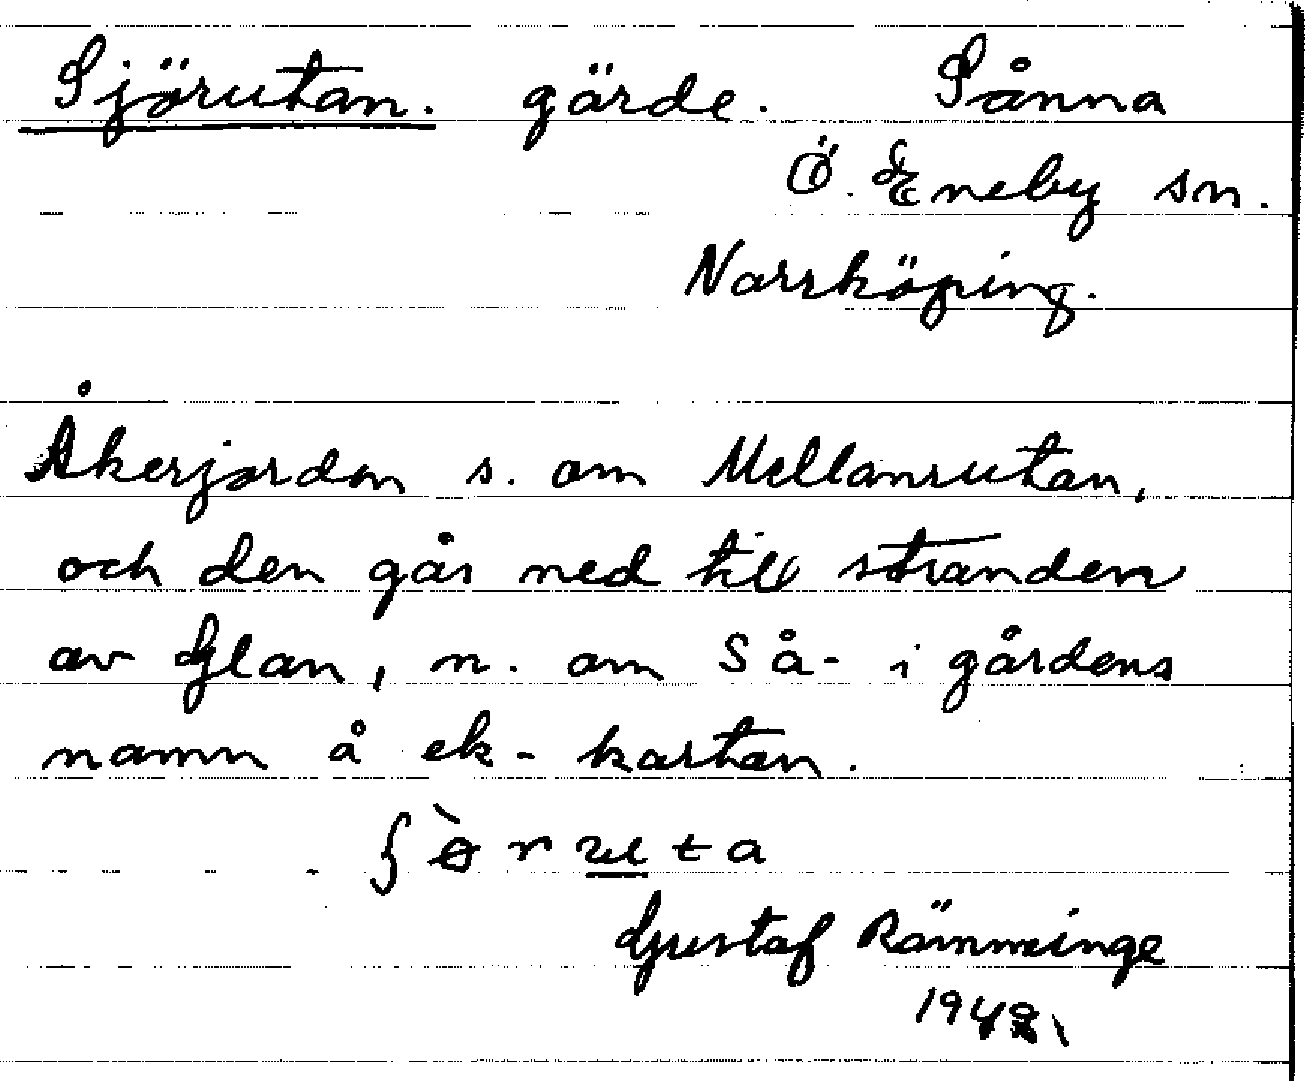 Sjörutan. gärde. Sånna
Ö. Eneby sn.
Norrköping.
Åkerjorden s. om Mellanrutan,
och den går ned till stranden
av Glan, n. om Så- i gårdens
namn å ek-kartan.
Gustaf Rämminge